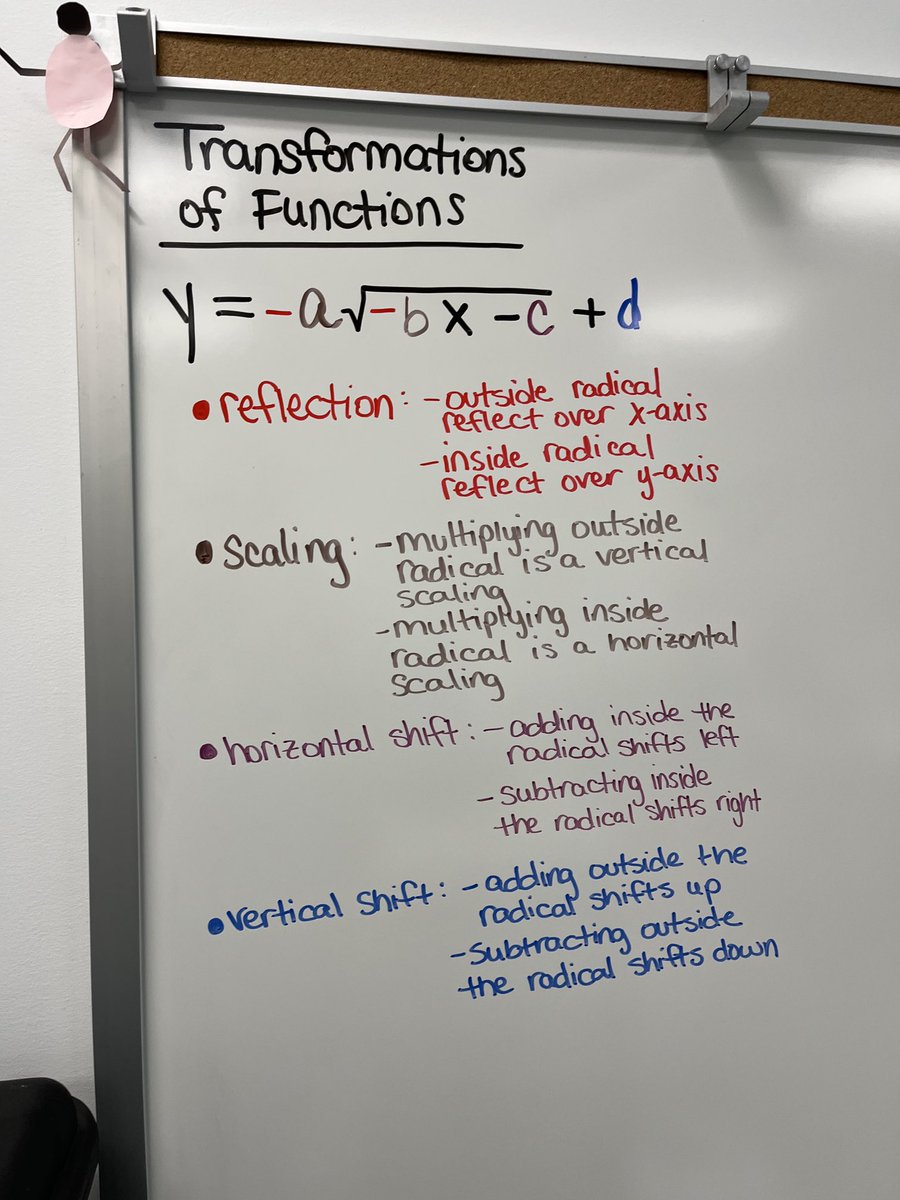 Transformations
of Functions
y = -a√-bx - c + d
• reflection: - outside radical
reflect over x-axis
- inside radical
reflect over y-axis
• Scaling: - multiplying outside
radical is a vertical
scaling
- multiplying inside
radical is a horizontal
scaling
• horizontal shift: - adding inside the
radical shifts left
- subtracting inside
the radical shifts right
• vertical shift: - adding outside the
radical shifts up
- subtracting outside
the radical shifts down